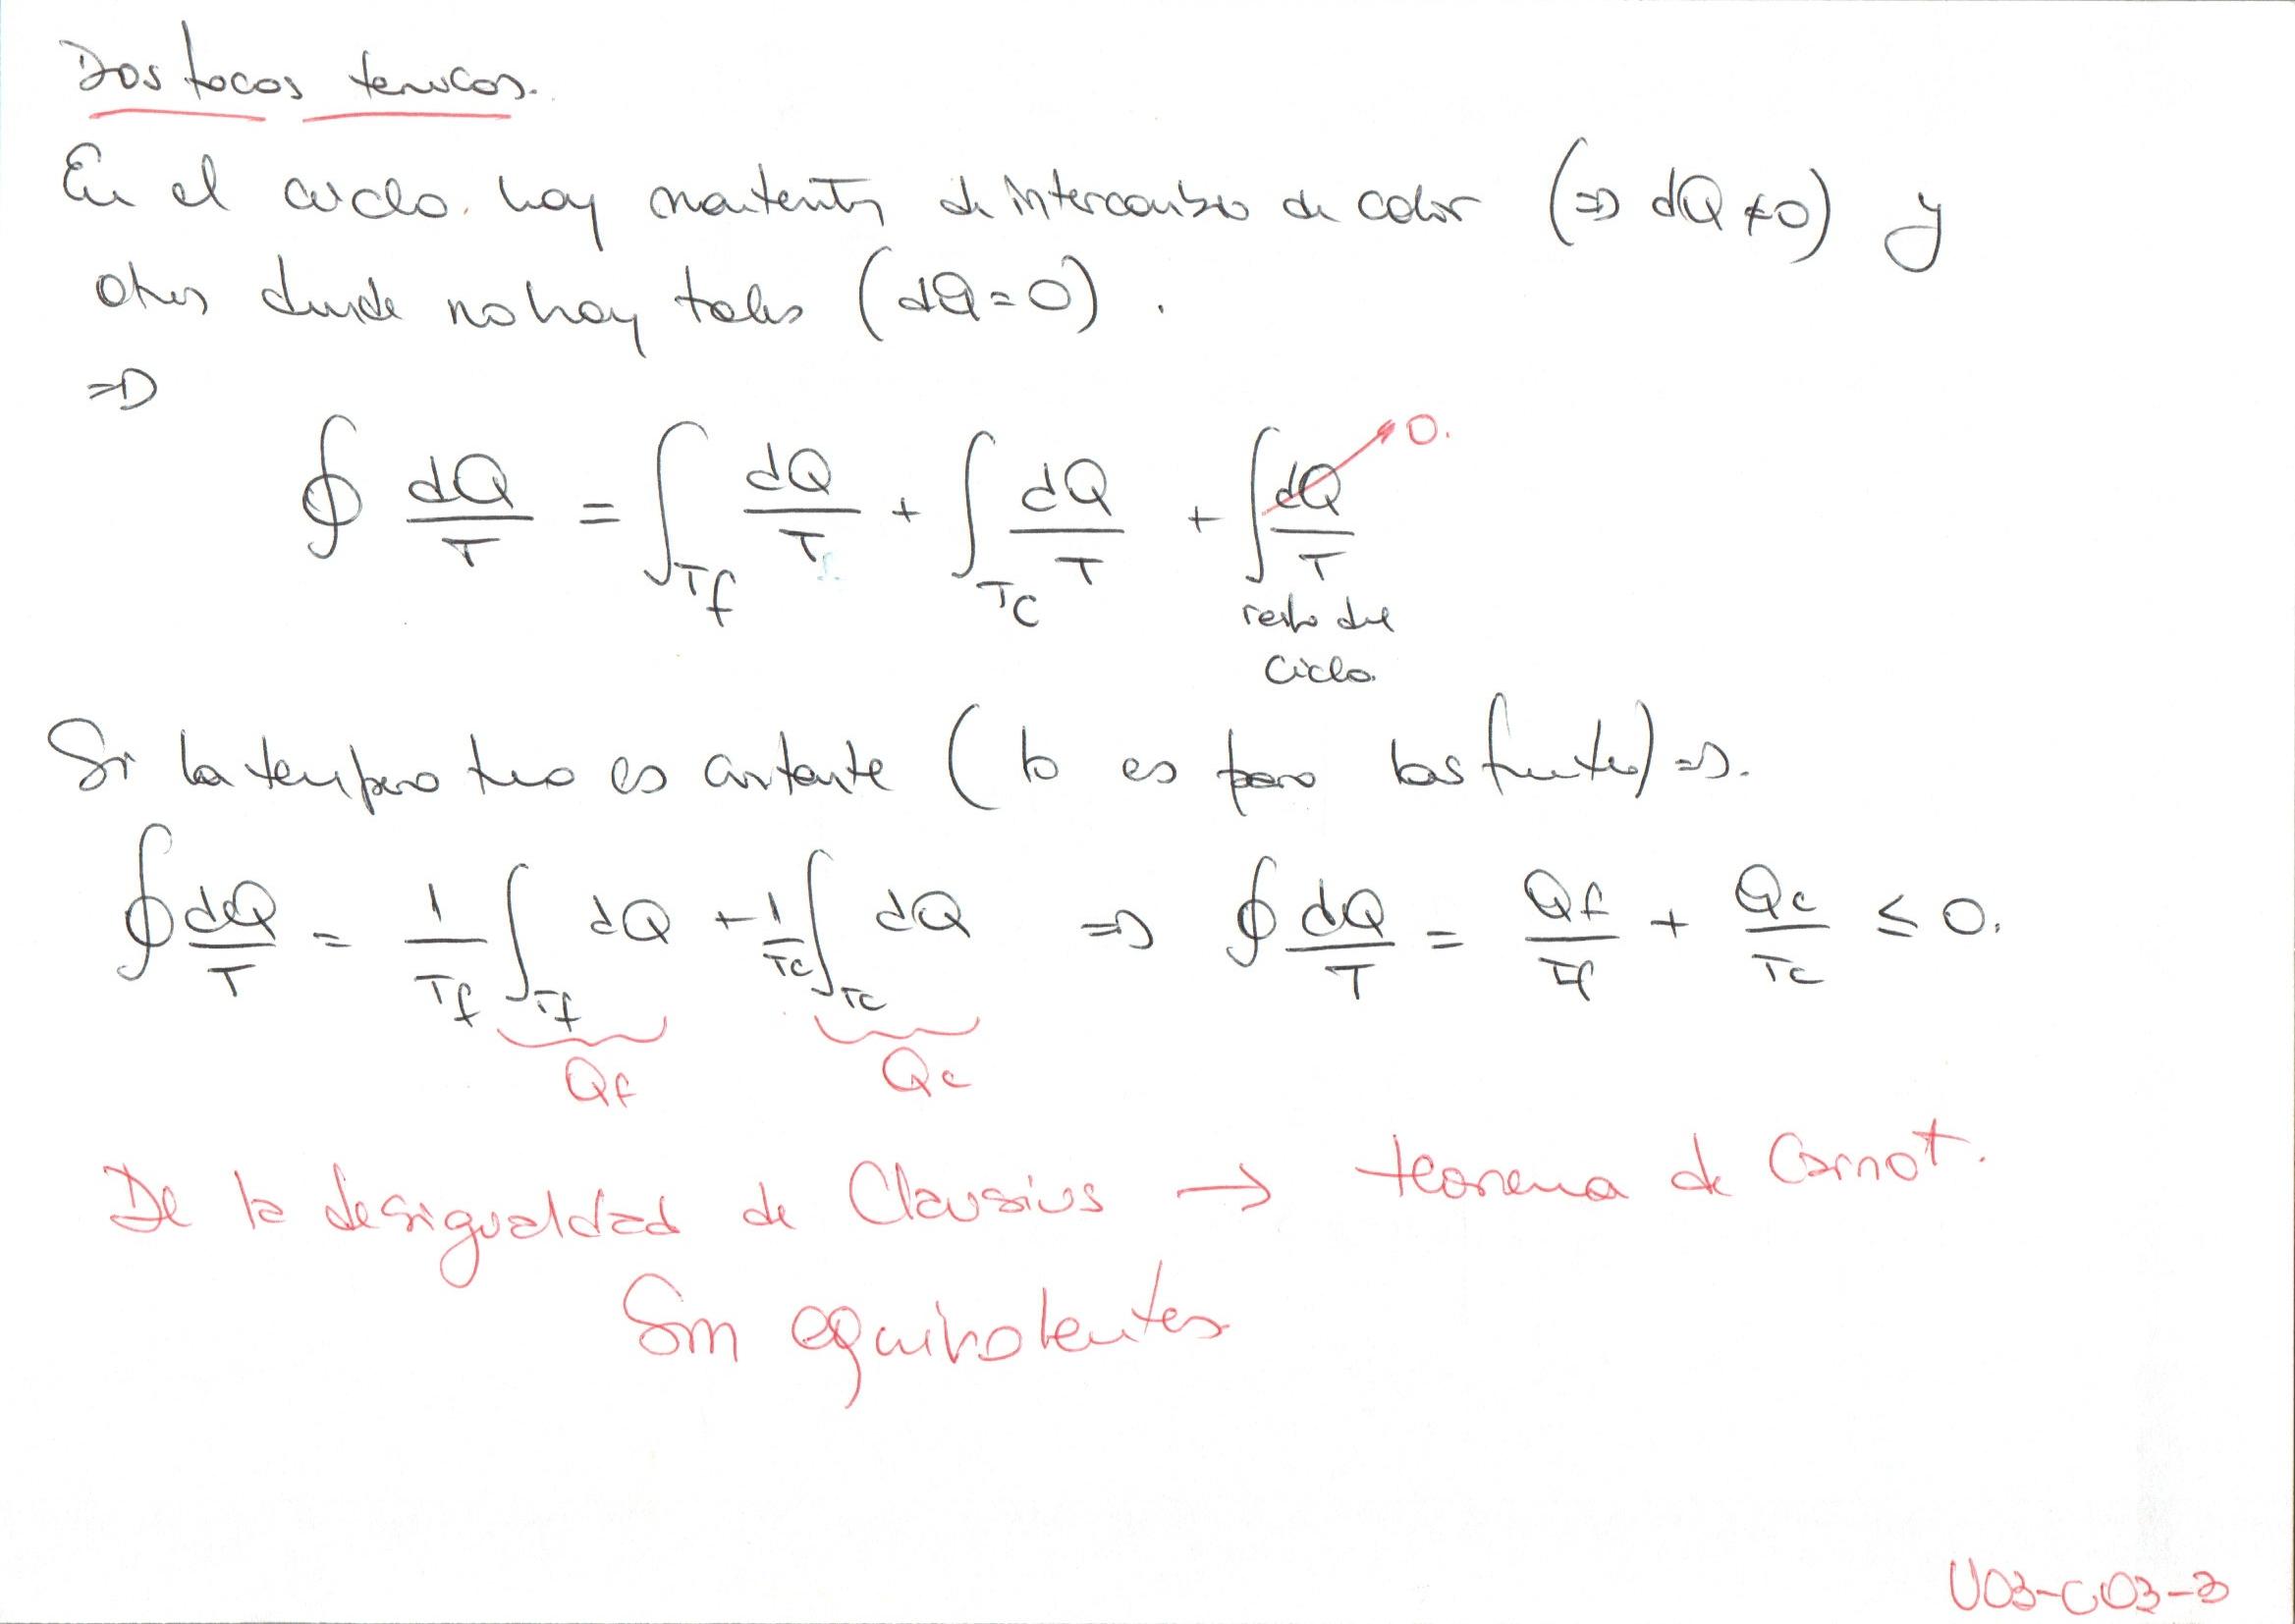 Dos focos térmicos.
En el ciclo hay momentos de intercambio de calor (⇒ dQ ≠ 0) y
otros donde no hay tales (dQ = 0).
⇒
∮ dQ/T = ∫_Tf dQ/T + ∫_Tc dQ/T + ∫_resto del ciclo dQ/T → 0.
Si la temperatura es constante (lo es para las fuentes) ⇒.
∮ dQ/T = 1/Tf ∫_Tf dQ + 1/Tc ∫_Tc dQ ⇒ ∮ dQ/T = Qf/Tf + Qc/Tc ≤ 0.
Qf Qc
De la desigualdad de Clausius → teorema de Carnot.
Son equivalentes
U03-C03-3